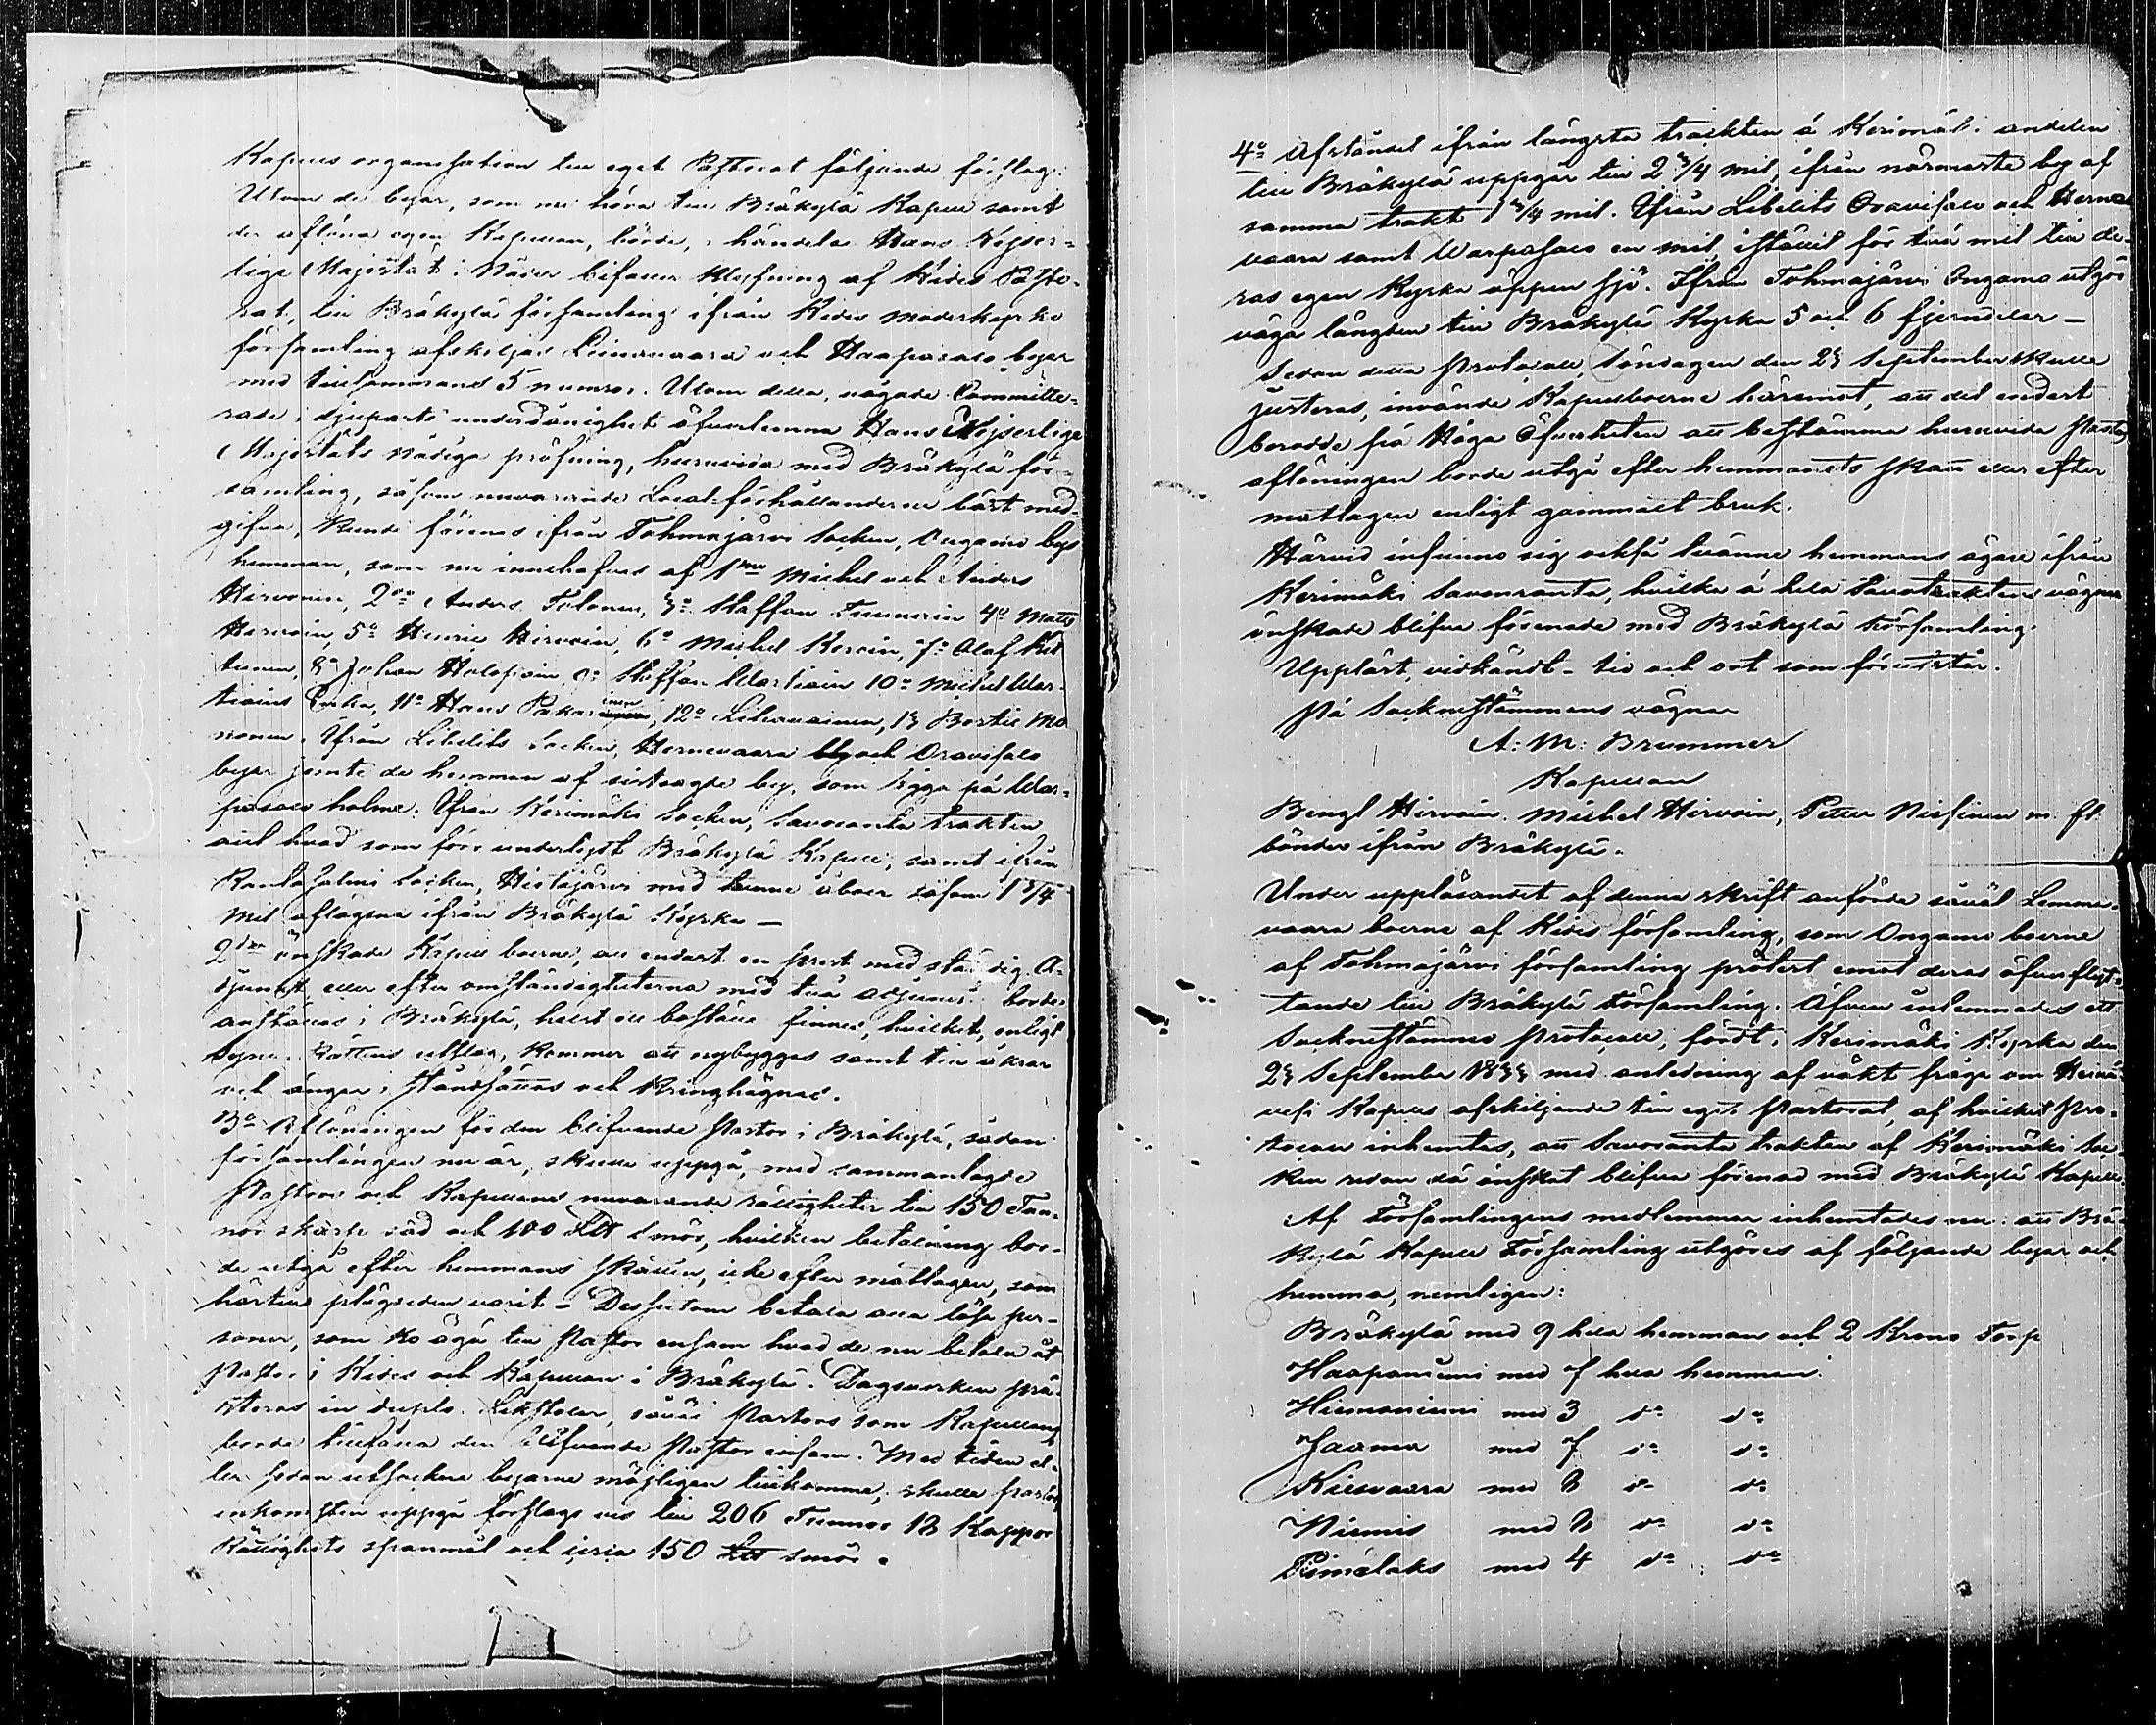 Kapells organisation till eget Pastorat följande förslag:
Utom de byar, som nu höra till Bräkylä Kapell samt
de aflöna egen Kapellan, borde, i händelse Hans Kejser-
lige Majestät i Nåder bifaller klyfning af Kides Pasto-
rat, till Bräkylä församling ifrån Kides moderkyrko
församling afskiljas Leinovaara och Haaparals byar
med tillsammans 5 numror. Utom dessa, vågade Committe-
rade i djupaste underdånighet öfverlemna Hans Kejserliga
Majestäts nådiga pröfning, huruvida med Bräkylä för-
samling, såsom nuvarande Local-förhållanderne bäst med-
gifva, kunde förenas ifrån Tohmajärvi Socken, Ongamo bys
hemman, som nu innehafves af 1mo Michel och Anders
Hirvonen, 2do Anders Tolonen, 3o Staffan Tuunoin 4o Mats
Hirvoin, 5o Henric Hirvoin, 6o Michel Kervin, 7o Olaf Kit
tunen, 8o Johan Holopain 9o Staffan Wartiain 10o Michel War-
tiains Enka, 11o Hans Pakarinen, 12o Lihavainen, 13 Bertil Mo
nonen. Ifrån Libelits Socken, Hernevaara och Oravisalo
byar jemte de hemman af sistsagde by, som ligga på War-
pasalo holme. Ifrån Kerimäki Socken, Savoranta trakten
allt hvad som förr underligt Bräkylä Kapell; samt ifrån
Rantasalmi Socken, Histäjärvi med tvenne åboer såsom 1 3/4
mil aflägsna ifrån Bräkylä Kyrka —
2do önskade Kapell boerne, att endast en prest med ständig A-
djunct eller efter omständigheterna med två adjuncter borde
anställas i Bräkylä, helst ett boställe finnes, hvilket, enligt
Syne Rättens utslag, kommer att nybyggas samt till åkrar
och ängar i ståndsättas och kringhägnas.
3o Aflöningen för den blifvande Pastor i Bräkylä, sådan
församlingen nu är, skulle uppgå, med sammanlagde
Pastors och Kapellans nuvarande rättigheter till 150 Tun-
nor skarp säd och 100 L℔ smör, hvilken betalning bor-
de utgå efter hemmans skatten, icke efter matlagen, som
härtills plägseden varit — Dessutom betala alla lösa per-
soner, som ko äga till Pastor ensam hvad de nu betala åt
Pastor i Kides och Kapellan i Bräkylä. Dagsverken prä-
steras in duplo. Likstolar, såväl Pastors som Kapellans
borde tillfalla den blifvande Pastor ensam. Med tiden el-
ler sedan utsockne byarne möjligen tillkomma, skulle pastors
inkomsten uppgå förslags vis till 206 Tunnor 12 Kappor
Rättighets spanmål och circa 150 L℔ smör.
4o Afståndet ifrån längsta trackten å Kerimäki andelen
till Bräkylä uppgår till 2 3/4 mil, ifrån närmaste by af
samma trakt 1 3/4 mil. Ifrån Libelits Oravisalo och Herne
vaara samt Warpasalo en mil, i ställe för två mil till de-
ras egen Kyrka öppen sjö. Ifrån Tohmajärvi Ongamo utgör
väga längden till Bräkylä Kyrka 5 och 6 fjerndelar —
Sedan detta Protocoll, söndagen den 23 September skulle
justeras, invände Kapellboerne häremot, att det endast
berodde på Höga Öfverheten att bestämma huruvida Pastors
aflöningen borde utgå efter hemmanets skatt eller efter
matlagen enligt gammalt bruk.
Härvid infunno sig också tvänne hemmans ägare ifrån
Kerimäki Savonranta, hvilka å hela Savotraktens vägnar
önskade blifva förenade med Bräkylä Församling.
Uppläst, vidkändt — tid och ort som förutstår.
På Sockne stämmans vägnar
A: M: Brummer
Kapellan
Bengt Hirvoin. Michel Hirvoin, Petter Nissinen m. fl.
bönder ifrån Bräkylä.
Under uppläsandet af denna skrift anförde såväl Lemme-
vaara boerne af Kides församling, som Ongamo boerne
af Tohmajärvi församling protest emot deras öfverflyt-
tande till Bräkylä Församling. Äfven inlemnades ett
Sockne stämmo Protocoll, fördt i Kerimäki Kyrka den
23 September 1833 med anledning af väkt fråga om Herna
vesi Kapells afskiljande till eget Pastorat, af hvilket Pro-
tocoll inhemtas, att Savoranta trakten af Kerimäki Soc-
ken redan då önskat blifva förenad med Bräkylä Kapell.
Af Församlingens medlemmar inhemtades nu: att Brä-
kylä Kapell Församling utgöres af följande byar och
hemma, nemligen:
Bräkylä med 9 hela hemman och 2 Krono Torp
Haapaniemi med 7 hela hemman.
Hiemaniemi med 3 do do
Jaama med 7 do do
Kiesvaara med 2 do do
Niemis med 2 do do
Pimälaks med 4 do do